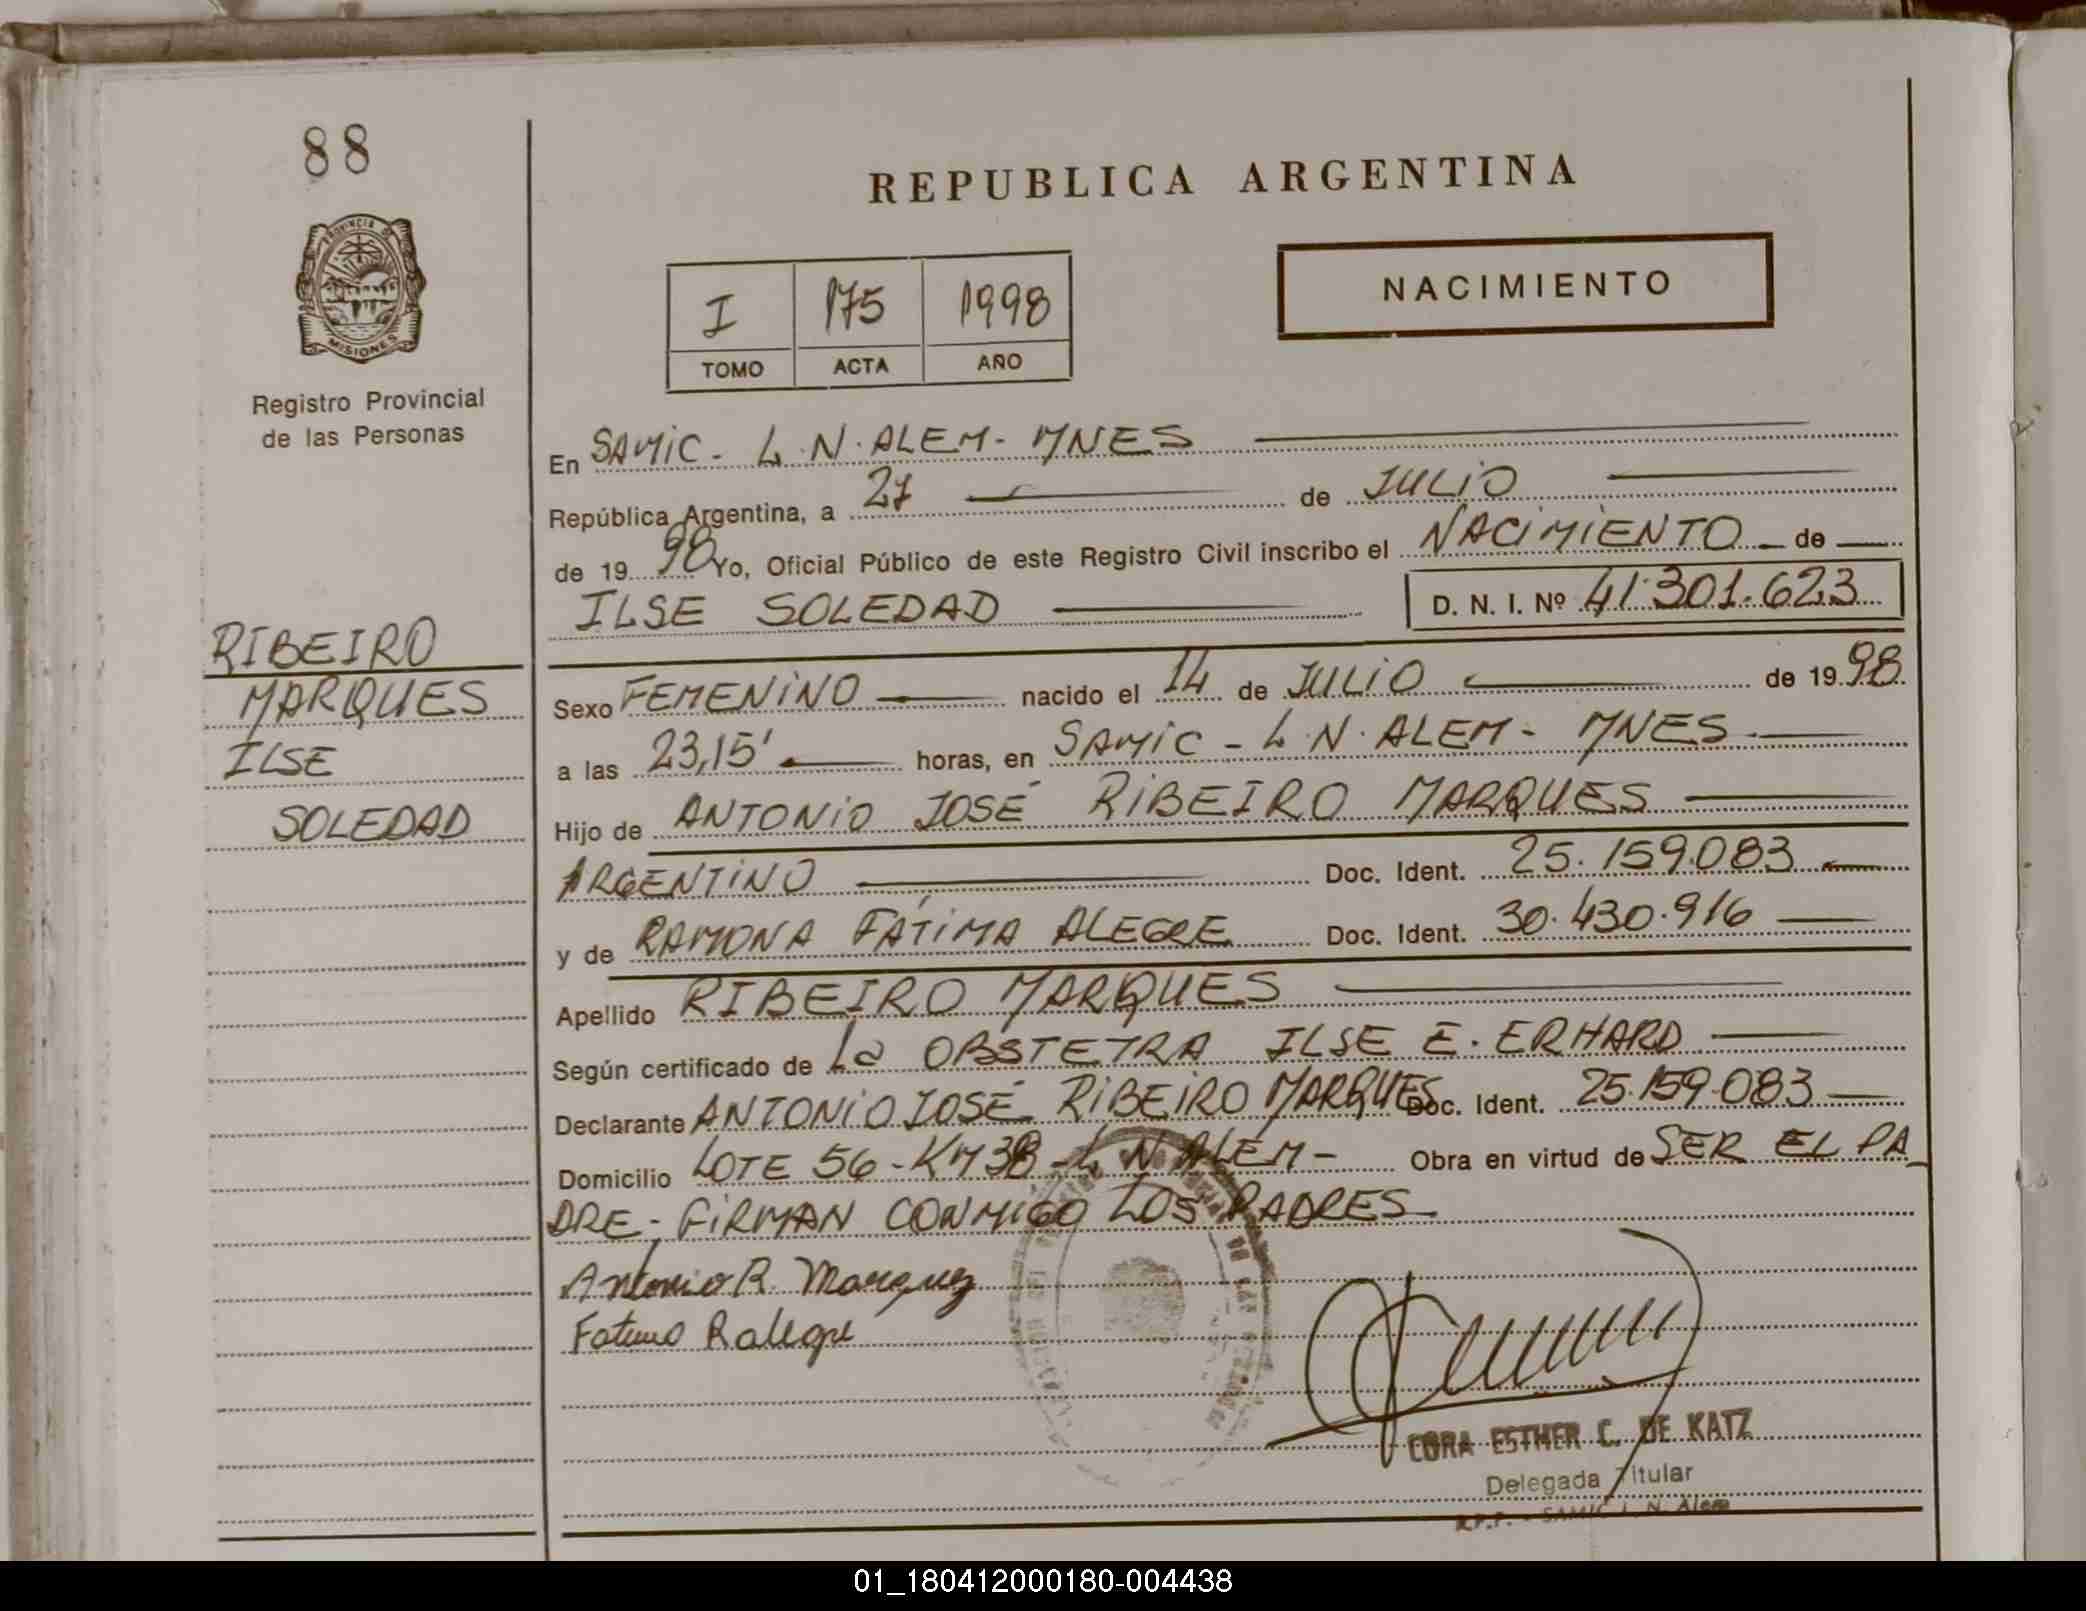 88
REPUBLICA ARGENTINA
PROVINCIA D
MISIONES
Registro Provincial
de las Personas
I 175 1998
TOMO ACTA AÑO
NACIMIENTO
En SAMIC - L.N. ALEM - MNES
República Argentina, a 27 de JULIO
de 19 98 Yo, Oficial Público de este Registro Civil inscribo el NACIMIENTO de
ILSE SOLEDAD D. N. I. Nº 41.301.623
RIBEIRO
MARQUES
ILSE
SOLEDAD
Sexo FEMENINO nacido el 14 de JULIO de 19 98
a las 23,15' horas, en SAMIC - L.N. ALEM - MNES
Hijo de ANTONIO JOSÉ RIBEIRO MARQUES
ARGENTINO Doc. Ident. 25.159.083
y de RAMONA FÁTIMA ALEGRE Doc. Ident. 30.430.916
Apellido RIBEIRO MARQUES
Según certificado de La OBSTETRA ILSE E. ERHARD
Declarante ANTONIO JOSÉ RIBEIRO MARQUES Doc. Ident. 25.159.083
Domicilio LOTE 56 - KM 38 - L N ALEM - Obra en virtud de SER EL PA
DRE - FIRMAN CONMIGO LOS PADRES
Antonio R. Marquez
CORA ESTHER C. DE KATZ
Delegada Titular
R.P.P. - SAMIC L. N. Alem
01_180412000180-004438